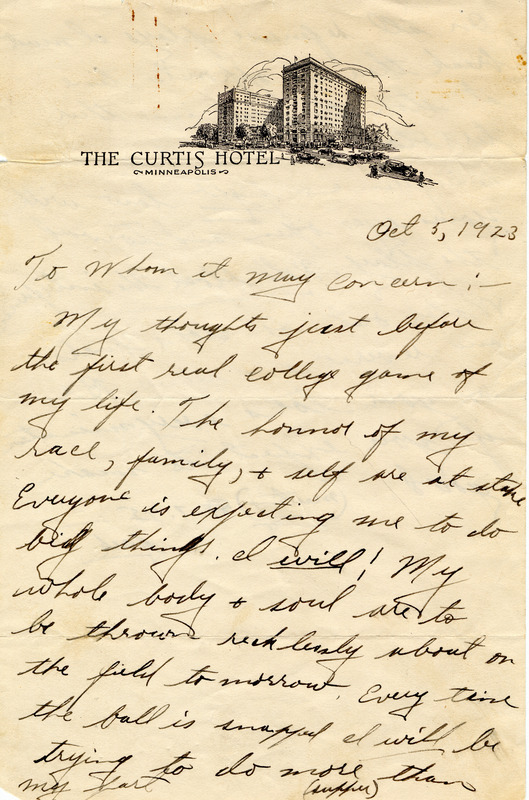 THE CURTIS HOTEL
MINNEAPOLIS
Oct 5, 1923
To Whom it may concern:-
My thoughts just before
the first real college game of
my life. The honnor of my
race, family, & self are at stake
Everyone is expecting me to do
big things. I will! My
whole body & soul are to
be thrown recklessly about on
the field tomorrow. Every time
the ball is snapped I will be
trying to do more than
my part (supper)